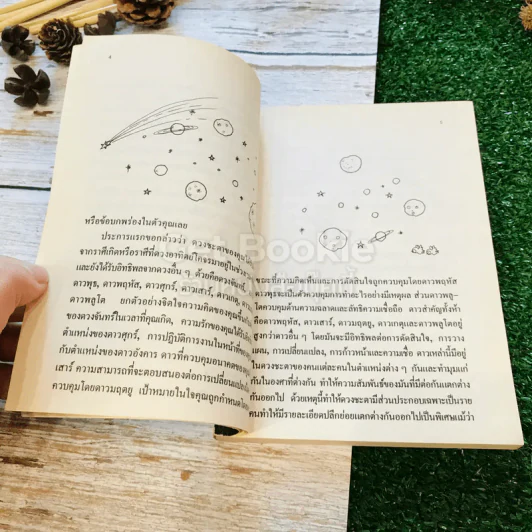 หรือข้อบกพร่องในตัวคุณเลย
ประการแรกขอกล่าวว่า ดวงชะตาของคุณไ
จากราศีเกิดหรือราศีที่ดวงอาทิตย์โคจรมาอยู่ใน
และยังได้รับอิทธิพลจากดวงอื่น ๆ ด้วยคือดวงจันทร์
ดาวพุธ, ดาวพฤหัส, ดาวศุกร์, ดาวเสาร์, ดาวเกตุ,
ดาวพลูโต ยกตัวอย่างจิตใจความคิดของคุณขึ้น
ของดวงจันทร์ในเวลาที่คุณเกิด, ความรักของคุณได้รับ
ตำแหน่งของดาวศุกร์, การปฏิบัติการงานในหน้าที่ของ
กับตำแหน่งของดาวอังคาร ดาวที่ควบคุมอนาคตของ
เสาร์ ความสามารถที่จะตอบสนองต่อการเปลี่ยนแปลง
ควบคุมโดยดาวมฤตยู เป้าหมายในใจคุณถูกกำหนดโดย
ขณะที่ความคิดฝันและการตัดสินใจถูกควบคุมโดยดาวพฤหัส
ดาวพุธจะเป็นตัวควบคุมการทำอะไรอย่างมีเหตุผล ส่วนดาวพลู-
โตควบคุมด้านความฉลาดและสิทธิความเชื่อถือ ดาวสำคัญทั้งห้า
คือดาวพฤหัส, ดาวเสาร์, ดาวมฤตยู, ดาวเกตุและดาวพลูโตอยู่
สูงกว่าดาวอื่น ๆ โดยมันจะมีอิทธิพลต่อการตัดสินใจ, การวาง
แผน, การเปลี่ยนแปลง, การก้าวหน้าและความเชื่อ ดาวเหล่านี้มีอยู่
ในดวงชะตาของคนแต่ละคนในตำแหน่งต่าง ๆ กันและทำมุมแก่
กันในองศาที่ต่างกัน ทำให้ความสัมพันธ์ของมันที่มีต่อกันแตกต่าง
กันออกไป ด้วยเหตุนี้ทำให้ดวงชะตามีส่วนประกอบเฉพาะเป็นราย
คนทำให้มีรายละเอียดปลีกย่อยแตกต่างกันออกไปเป็นพิเศษแม้ว่า